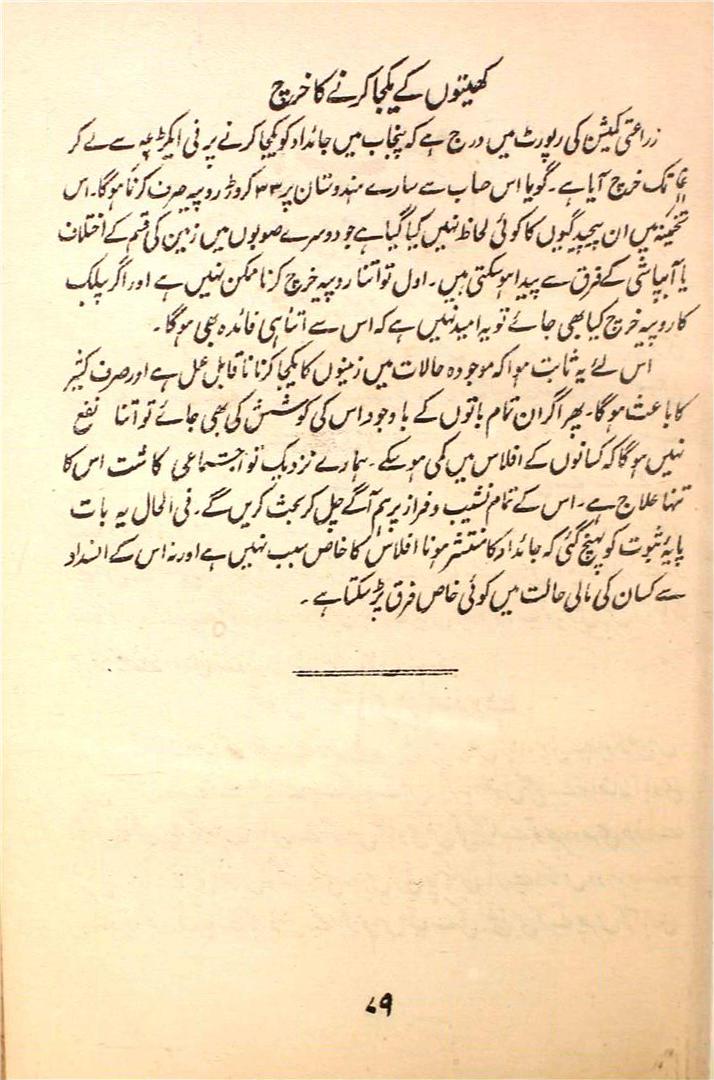 کھیتوں کے یکجا کرنے کا خرچ
زراعتی کمیشن کی رپورٹ میں درج ہے کہ پنجاب میں جائداد کو یکجا کرنے پر فی ایکڑ سے لے کر
تک خرچ آیا ہے۔ گویا اس حساب سے سارے ہندوستان پر ۳۳ کروڑ روپیہ صرف کرنا ہوگا۔ اس
تخمینہ میں ان پیچیدگیوں کا کوئی لحاظ نہیں کیا گیا ہے جو دوسرے صوبوں میں زمین کی قسم کے اختلاف
یا آبپاشی کے فرق سے پیدا ہو سکتی ہیں۔ اول تو اتنا روپیہ خرچ کرنا ممکن نہیں ہے اور اگر پبلک
کا روپیہ خرچ کیا بھی جائے تو یہ امید نہیں ہے کہ اس سے اتنا ہی فائدہ بھی ہوگا۔
اس لئے یہ ثابت ہوا کہ موجودہ حالات میں زمینوں کا یکجا کرنا ناقابل عمل ہے اور صرف کثیر
کا باعث ہوگا۔ پھر اگر ان تمام باتوں کے باوجود اس کی کوشش کی بھی جائے تو اتنا نفع
نہیں ہوگا کہ کسانوں کے افلاس میں کمی ہو سکے۔ ہمارے نزدیک تو اجتماعی کاشت اس کا
تنہا علاج ہے۔ اس کے تمام نشیب و فراز پر ہم آگے چل کر بحث کریں گے۔ فی الحال یہ بات
پایۂ ثبوت کو پہنچ گئی کہ جائداد کا منتشر ہونا افلاس کا خاص سبب نہیں ہے اور نہ اس کے انسداد
سے کسان کی مالی حالت میں کوئی خاص فرق پڑ سکتا ہے۔
۷۹